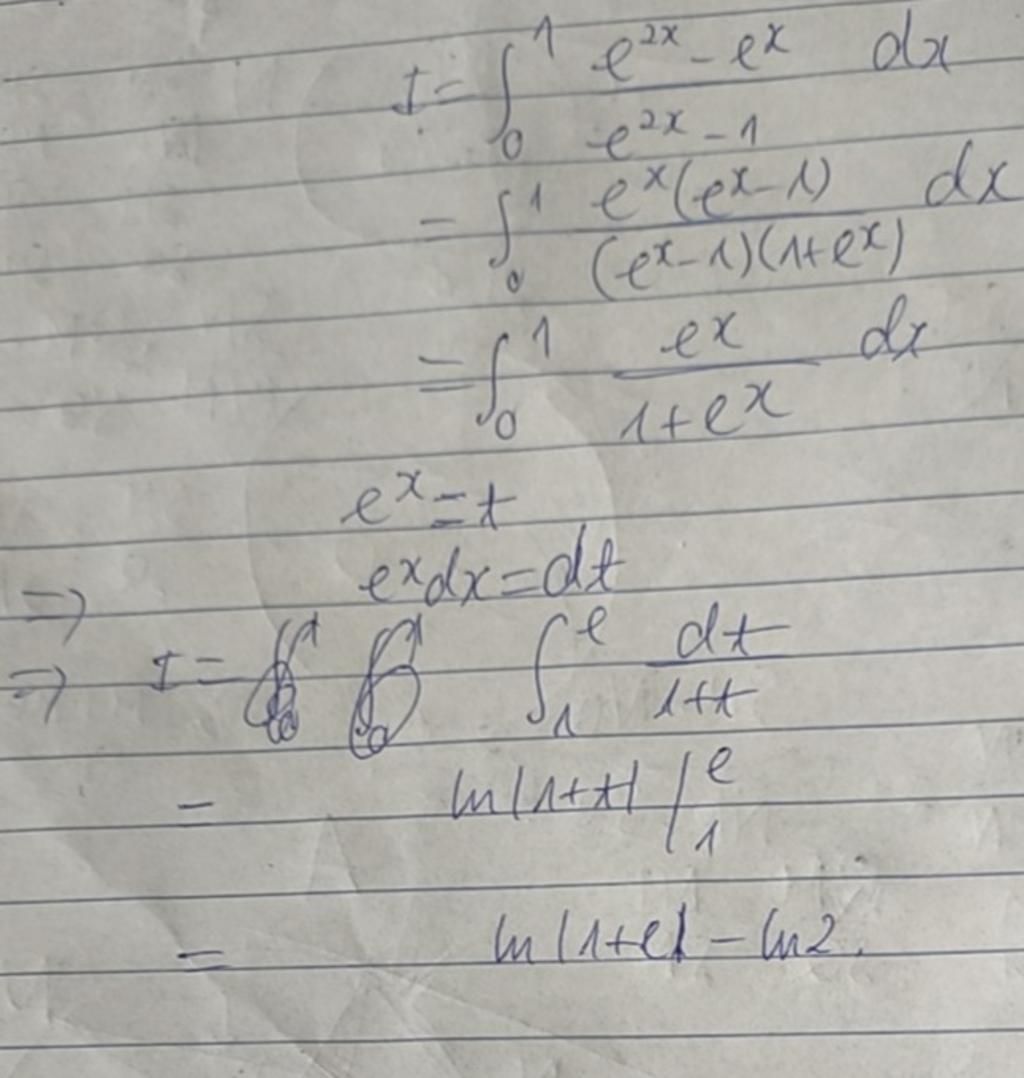 I = ∫₀¹ (e^{2x} - e^x)/(e^{2x} - 1) dx
= ∫₀¹ e^x(e^x - 1)/((e^x - 1)(1 + e^x)) dx
= ∫₀¹ e^x/(1 + e^x) dx
e^x = t
⇒ e^x dx = dt
⇒ I = ∫₁^e dt/(1 + t)
= ln|1 + t| |₁^e
= ln|1 + e| - ln2.